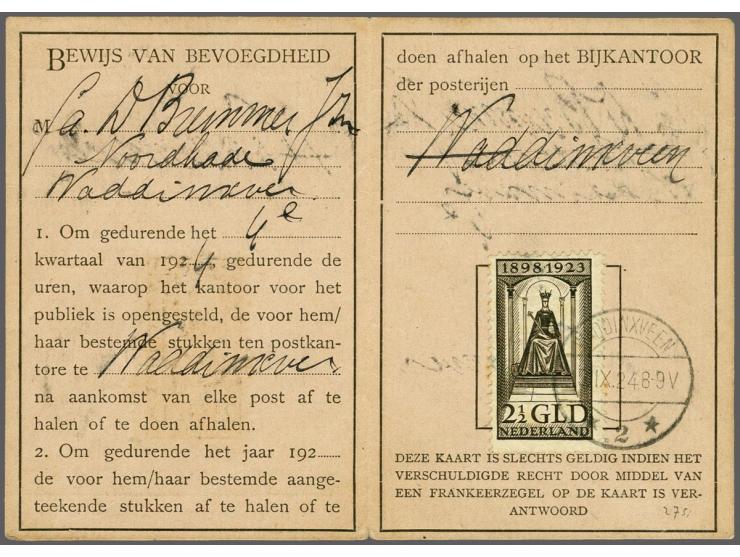 BEWIJS VAN BEVOEGDHEID
VOOR
M
Noordkade
Waddinxveen
1. Om gedurende het 4e
kwartaal van 1924 gedurende de
uren, waarop het kantoor voor het
publiek is opengesteld, de voor hem/
haar bestemde stukken ten postkan-
tore te Waddinxveen
na aankomst van elke post af te
halen of te doen afhalen.
2. Om gedurende het jaar 192
de voor hem/haar bestemde aange-
teekende stukken af te halen of te
doen afhalen op het BIJKANTOOR
der posterijen
Waddinxveen
1898 1923
2½ GLD
NEDERLAND
DDINXVEEN
IX.24 8-9V
2
DEZE KAART IS SLECHTS GELDIG INDIEN HET
VERSCHULDIGDE RECHT DOOR MIDDEL VAN
EEN FRANKEERZEGEL OP DE KAART IS VER-
ANTWOORD